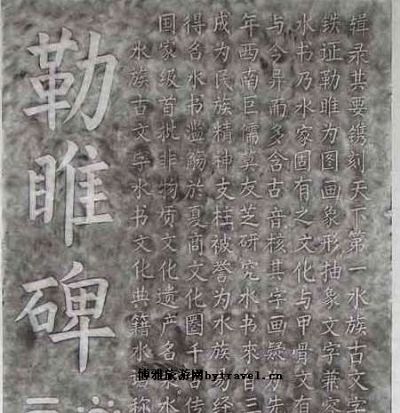 勒雎碑
水族古文字水书文化典籍水称
国家级首批非物质文化遗产名水
得名水书滥觞於夏商文化圈千佳
成为民族精神支柱被誉为水族易经
年西南巨儒莫友芝研究水书來
与今异而多含古音核其字画疑为先
水书乃水家固有之文化与甲骨文有
铁证勒雎为图画象形抽象文字兼容
辑录其要镌刻天下第一水族古文字
博雅旅游网bytravel.cn